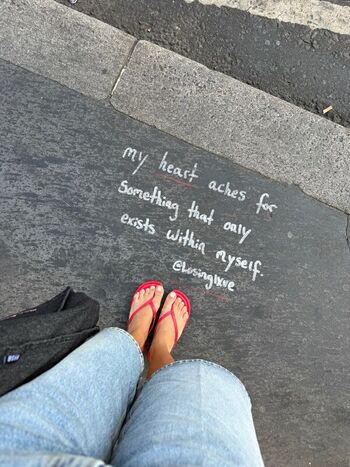 my heart aches for
something that only
exists within myself.
@losinglxve